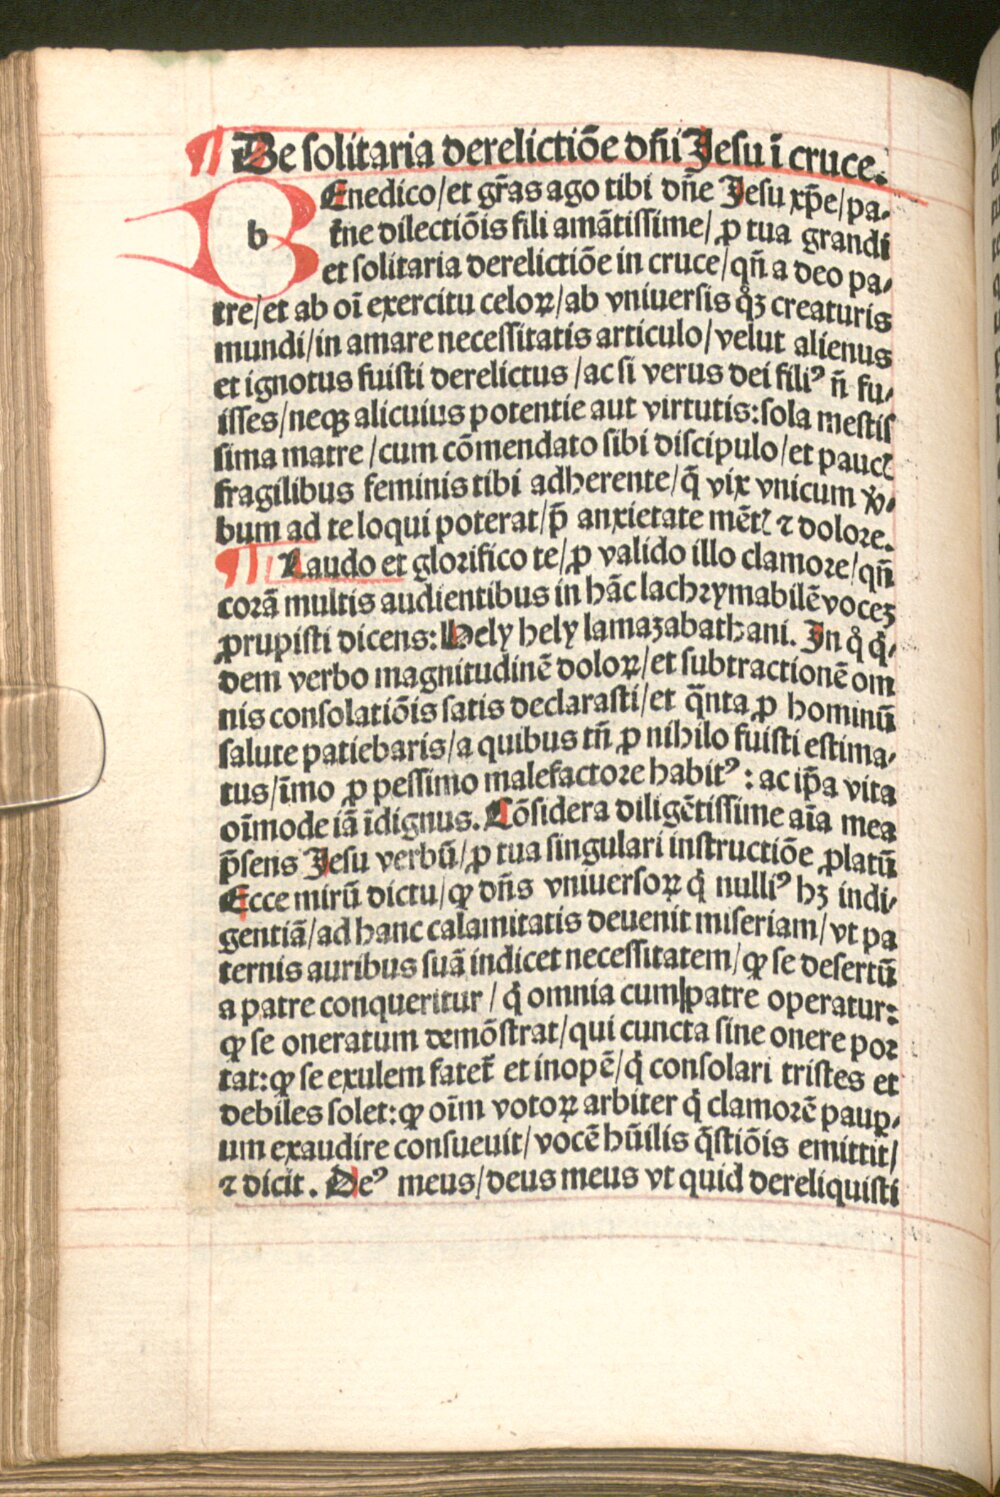 ¶ De solitaria derelictiōe dn̄i Jesu ī cruce.
b Enedico/et gr̄as ago tibi dn̄e Jesu xp̄e/pa-
t̄ne dilectiōis fili amātissime/ꝓ tua grandi
et solitaria derelictiōe in cruce/qn̄ a deo pa-
tre/et ab oī exercitu celoꝝ/ab vniuersis qͦꝫ creaturis
mundi/in amare necessitatis articulo/velut alienus
et ignotus fuisti derelictus/ac si verus dei filiꝰ n̄ fu-
isses/neqꝫ alicuius potentie aut virtutis:sola mestis
sima matre/cum cōmendato sibi discipulo/et paucꝭ
fragilibus feminis tibi adherente/q̄ vix vnicum v̓-
bum ad te loqui poterat/p̄ anxietate mētꝭ ⁊ dolore.
¶ Laudo et glorifico te/ꝓ valido illo clamore/qn̄
corā multis audientibus in hāc lachrymabilē voceꝫ
ꝓrupisti dicens:Hely hely lamazabathani. Jn qͦ qͥ-
dem verbo magnitudinē doloꝝ/et subtractionē om
nis consolatiōis satis declarasti/et q̄nta ꝓ hominū
salute patiebaris/a quibus tn̄ ꝓ nihilo fuisti estima-
tus/īmo ꝓ pessimo malefactore habitꝰ: ac ip̄a vita
oīmode iā īdignus. Cōsidera diligētissime aīa mea
p̄sens Jesu verbū/ꝓ tua singulari instructiōe ꝓlatū
Ecce mirū dictu/ꝙ dn̄s vniuersoꝝ qͥ nulliꝰ hꝫ indi-
gentiā/ad hanc calamitatis deuenit miseriam/vt pa
ternis auribus suā indicet necessitatem/ꝙ se desertū
a patre conqueritur/qͥ omnia cum patre operatur:
ꝙ se oneratum demōstrat/qui cuncta sine onere por
tat:ꝙ se exulem fatet᷑ et inopē/qͥ consolari tristes et
debiles solet:ꝙ oīm votoꝝ arbiter qͥ clamorē pauꝑ-
um exaudire consueuit/vocē hūilis q̄stiōis emittit/
⁊ dicit. Deꝰ meus/deus meus vt quid dereliquisti